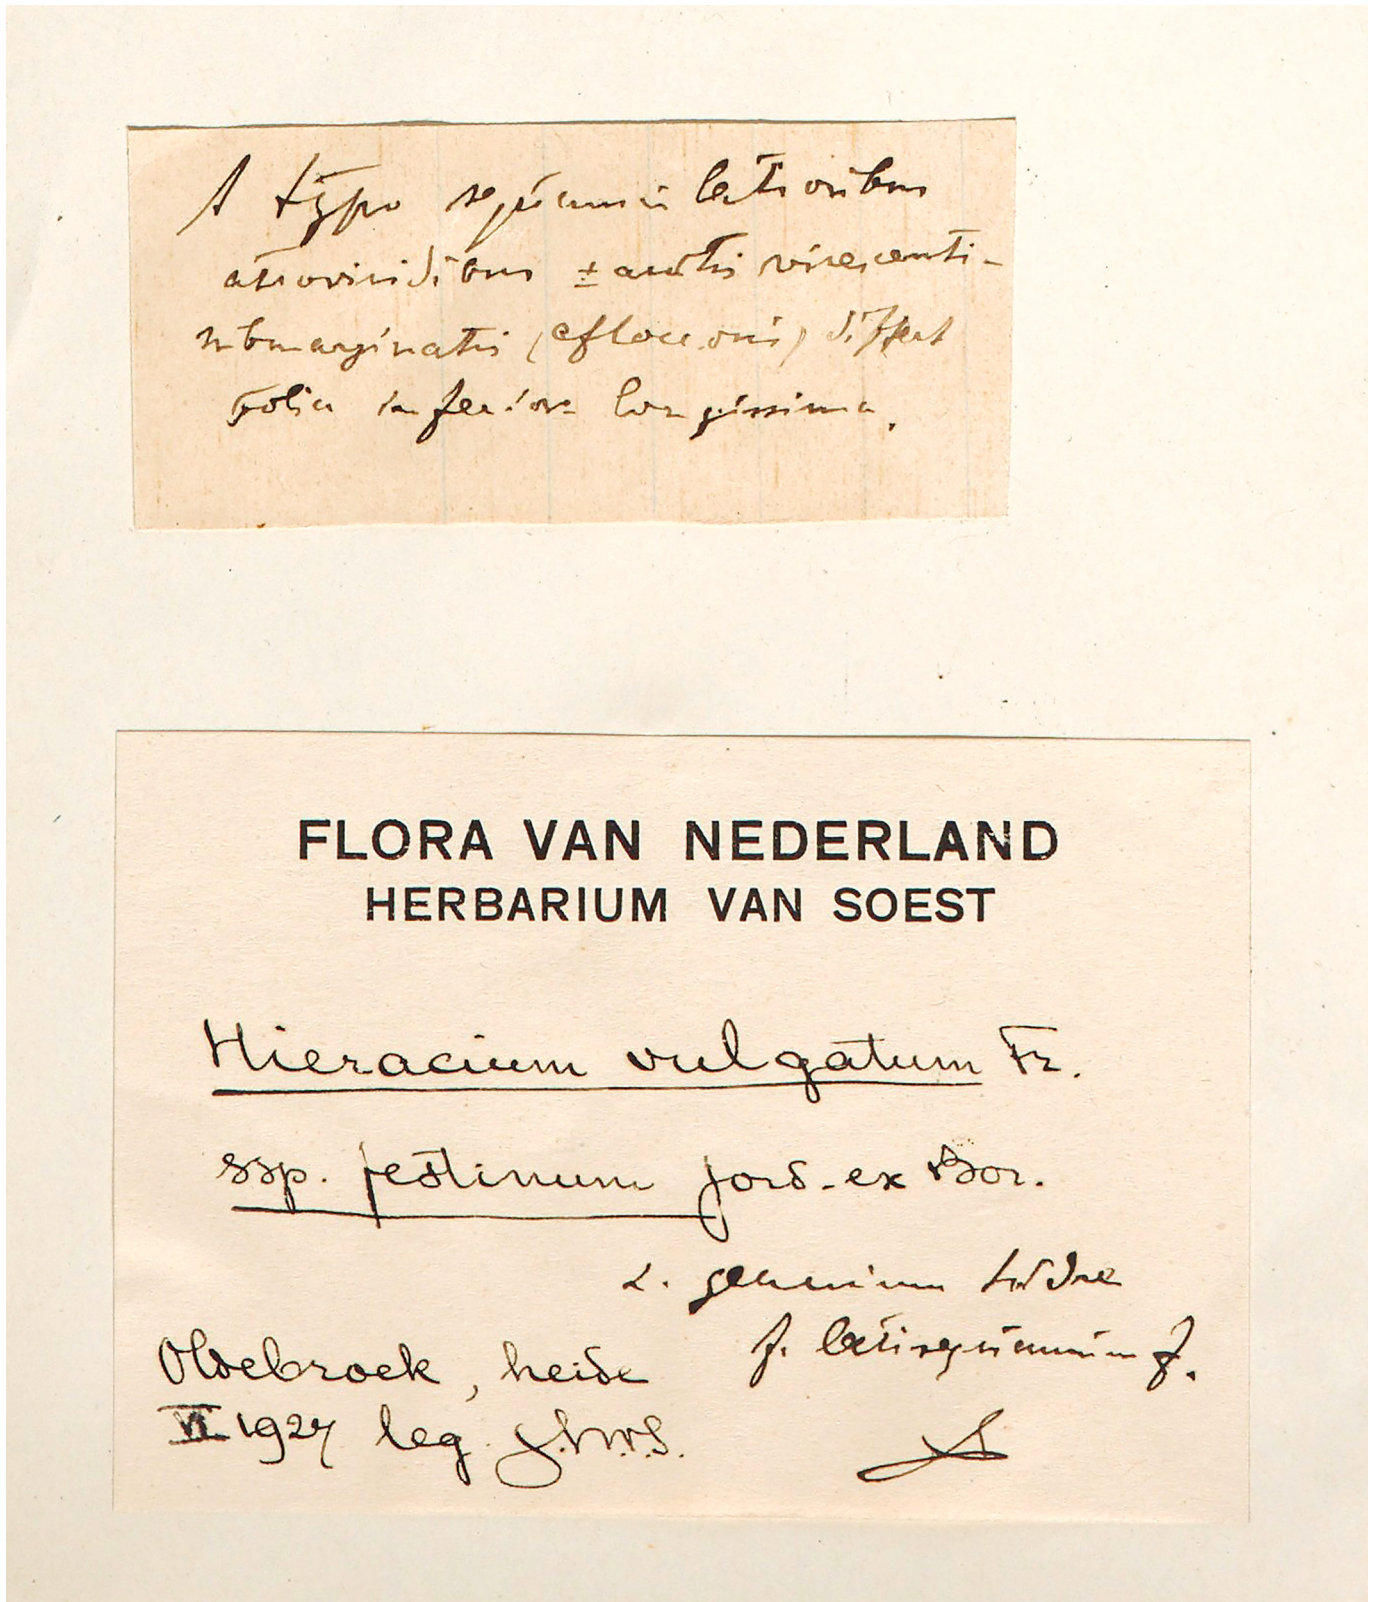 A typo squamis latioribus
atroviridibus ± acutis virescenti-
submarginatis (efloccosis) differt
folia inferiora longissima.
FLORA VAN NEDERLAND
HERBARIUM VAN SOEST
Hieracium vulgatum Fr.
ssp. festinum Jord. ex Bor.
α. genuinum
f. latisquamum f.
Oldebroek, heide
VI 1927 leg. J.L.v.S.